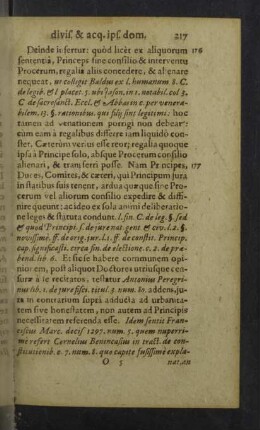 divis. & acq. ips. dom. 217
Deinde infertur: quòd licèt ex aliquorum 176
sententiâ, Princeps sine consilio & interventu
Procerum, regalia aliis concedere, & alienare
nequeat, ut collegit Baldus ex l. humanum 8. C.
de legib. & l placet. 5. ubi Jason. in 1. notabil. col 3.
C de sacrosanct. Eccl. & Abbas in c. per venera-
bilem, 13. §. rationibus. qui filij sint legitimi: hoc
tamen ad venationem porrigi non debeat:
cum eam à regalibus differre jam liquidò con-
stet. Cæterùm verius esse reor; regalia quoque
ipsâ à Principe solo, absque Procerum consilio
alienari, & transferri posse. Nam Principes, 177
Duces, Comites, & cæteri, qui Principum jura
in statibus suis tenent, ardua quæque sine Pro-
cerum vel aliorum consilio expedire & diffi-
nire queunt; ac ideo ex solâ animi deliberatio-
ne leges & statuta condunt. l. fin. C. de leg. §. sed
& quod Principi. §. de jure nat. gent. & civ. l. 2. §.
novissimè. ff. de orig. jur. l. 1. ff. de constit. Princip.
cap. significasti. circa fin. de electione. c. 2. de pre-
bend. lib. 6. Et sic se habere communem opi-
niorem, post aliquot Doctores utriusque cen-
suræ à se recitatos, testatur Antonius Peregri-
nus lib. 1. de jure fisci. titul. 3. num. 80. addens, ju-
ra in contrarium suprà adducta ad urbanita-
tem sive honestatem, non autem ad Principis
necessitatem referenda esse. Idem sentit Fran-
ciscus Marc. decis 1297. num. 5. quem nuperri-
mè refert Cornelius Benincasius in tract. de con-
stitutionib. c. 7. num. 8. quo capite fusissimè expla-
O 5 nat, an